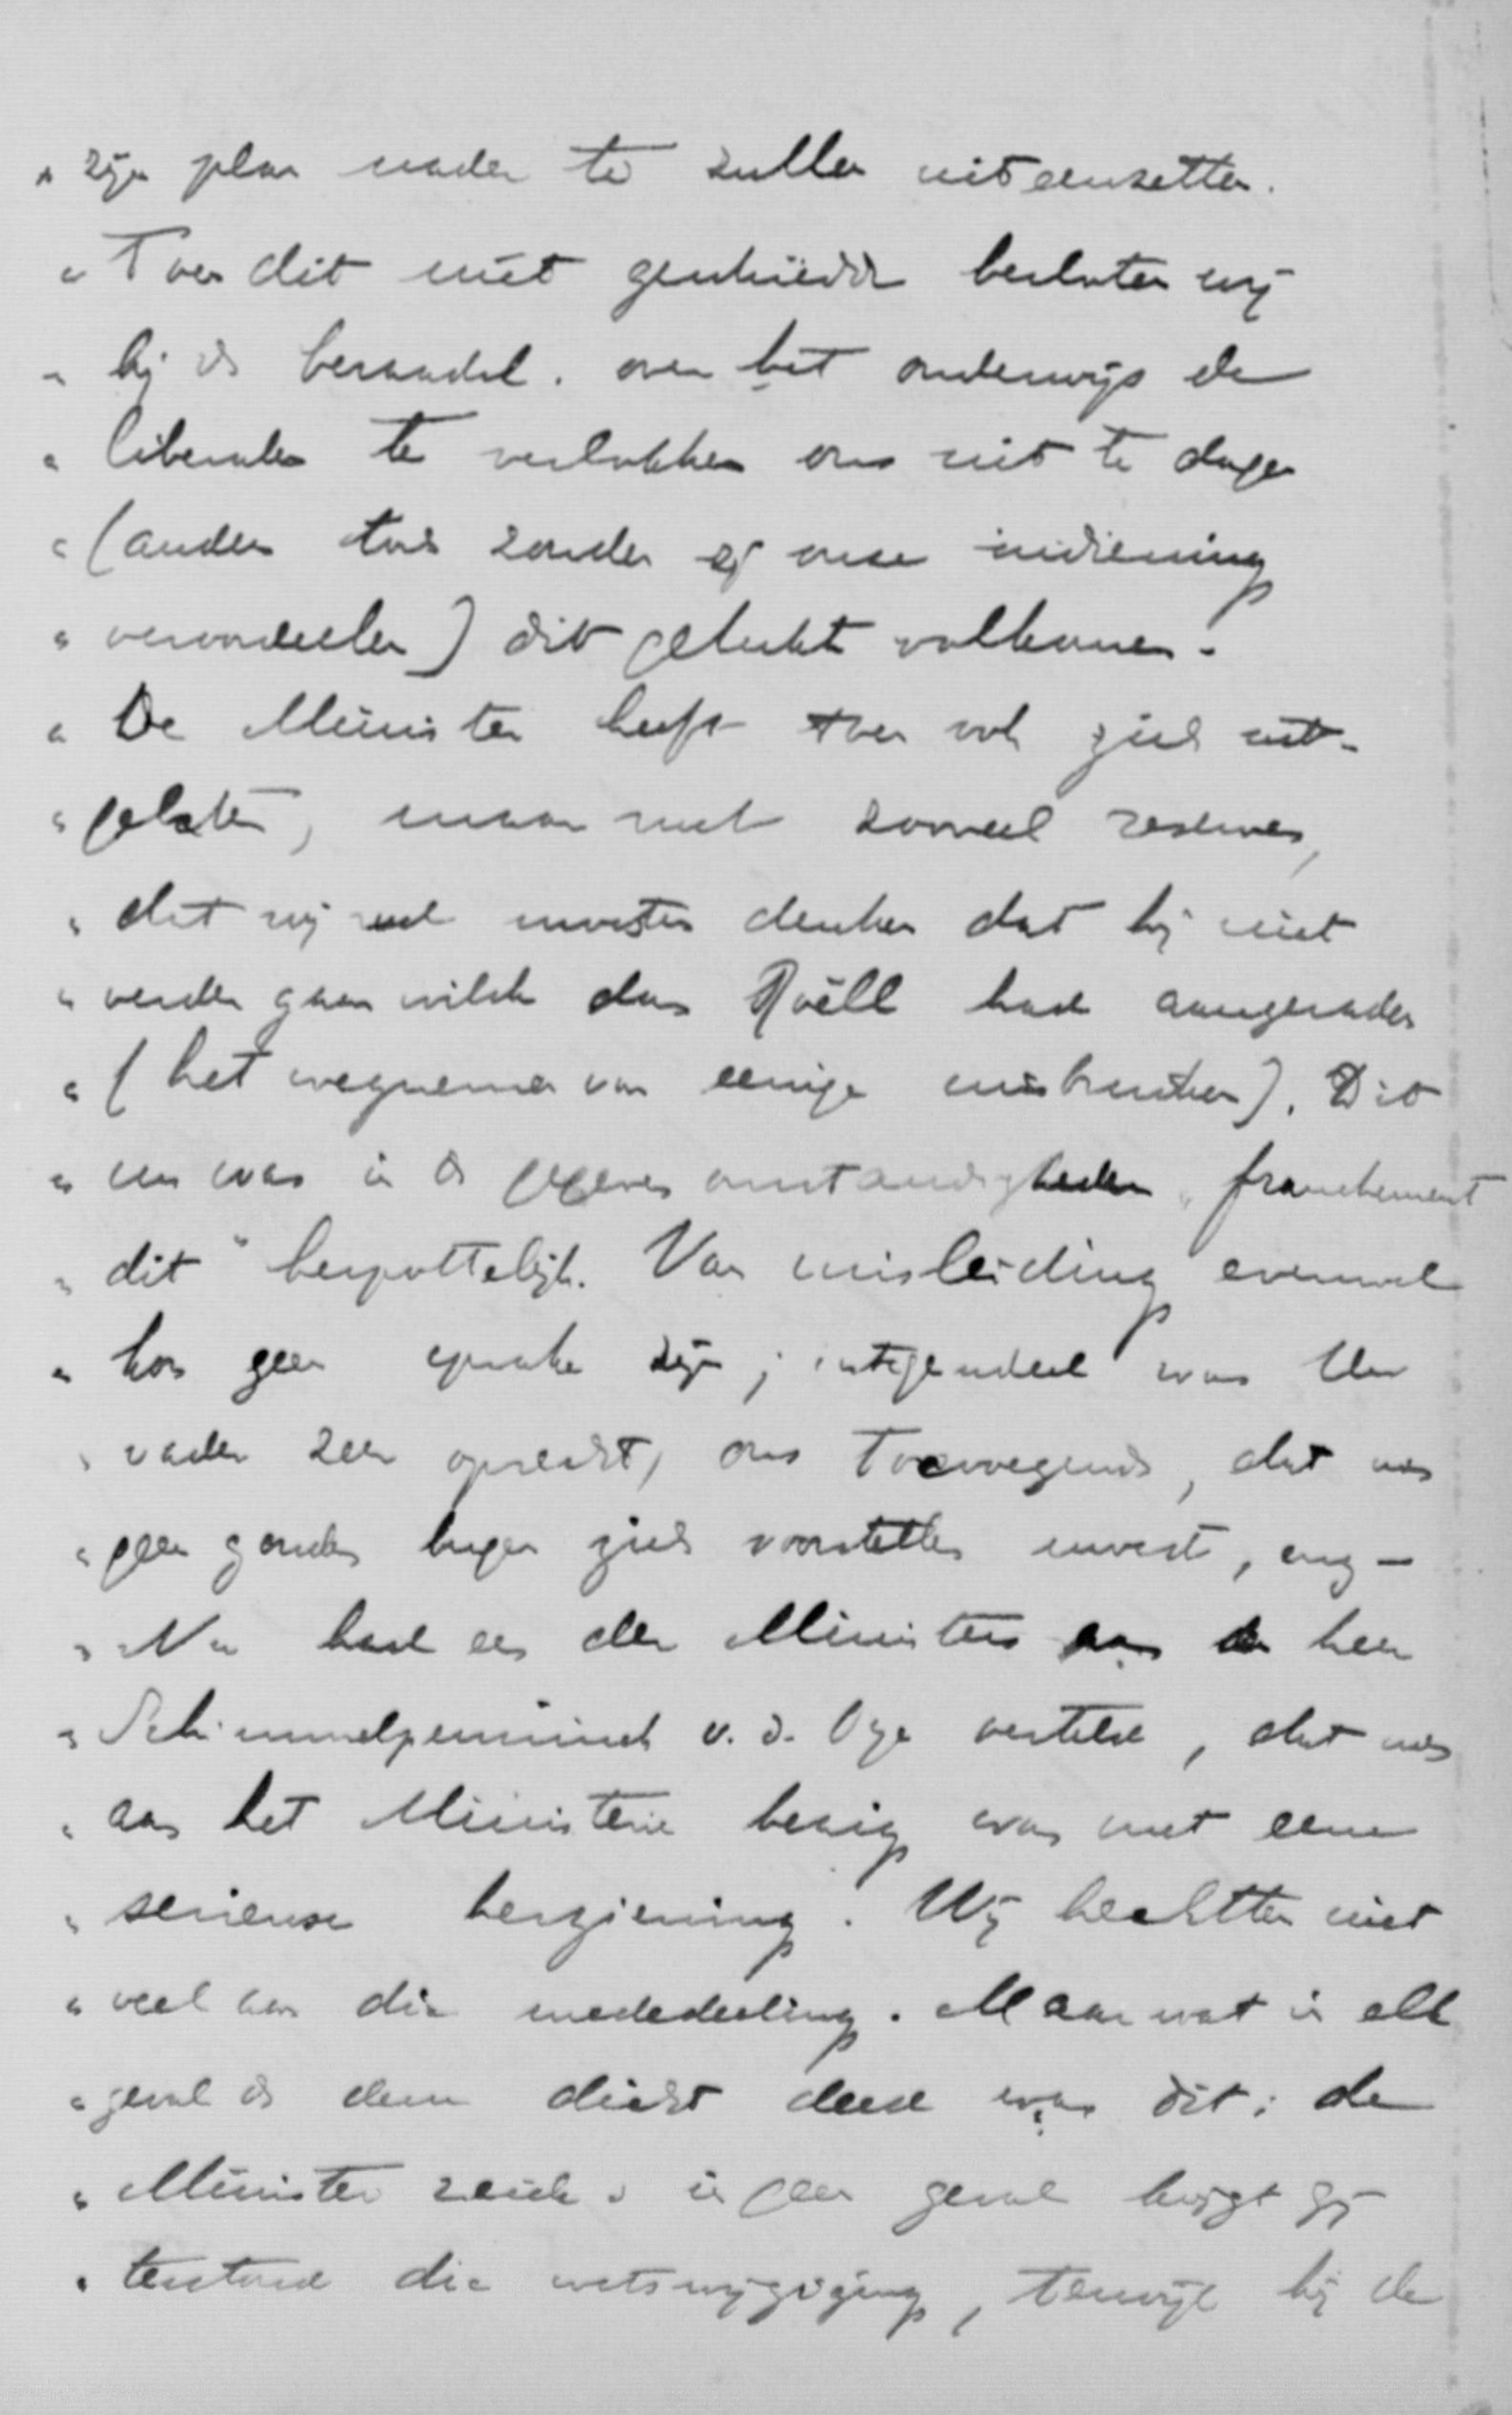 " zijn plan nader te zullen uiteenzetten.
" Toen dit niet geschiedde besloten wij
" bij de beraadsl. over het onderwijs de
" liberalen te verlokken ons uit te dagen
" (anders toch zouden zij onze indiening
" veroordeelen) dit gelukte volkomen.
" De Minister heeft toen ook zich uit-
" gelaten, maar met zooveel reserves,
" dat wij wel moesten denken dat hij niet
" verder gaan wilde dan Röell had aangeraden
" (het wegnemen van eenige misbruiken). Dit
" nu was in de gegeven omstandigheden "franchement
" dit" bespottelijk. Van misleiding evenwel
" kon geen sprake zijn; integendeel was Uw
" vader zeer oprecht, ons toevoegend, dat men
" geen gouden bergen zich voorstellen moest, enz –
" Nu had een der Ministers aan den heer
" Schimmelpenninck v. d. Oye verteld, dat men
" aan het Ministerie bezig was met eene
" serieuse herziening. Wij hechtten niet
" veel aan die mededeeling. Maar wat in elk
" geval de deur dicht deed was dit: de
" Minister zeide: in geen geval krijgt gij
" terstond die wetswijziging, terwijl bij de